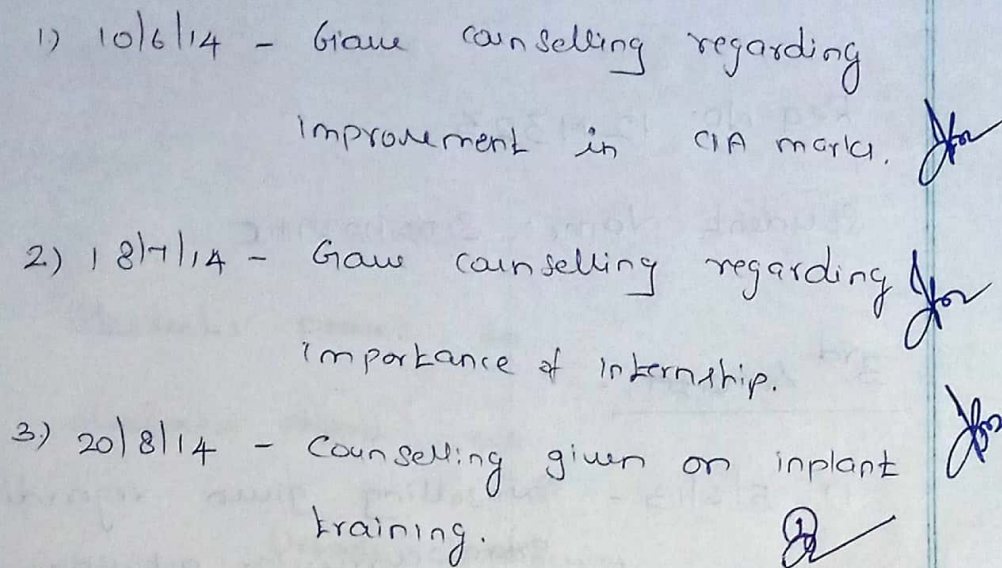 1) 10/6/14 - Gave counselling regarding
improvement in CIA marks.
2) 18/7/14 - Gave counselling regarding
importance of internship.
3) 20/8/14 - Counselling given on inplant
training.